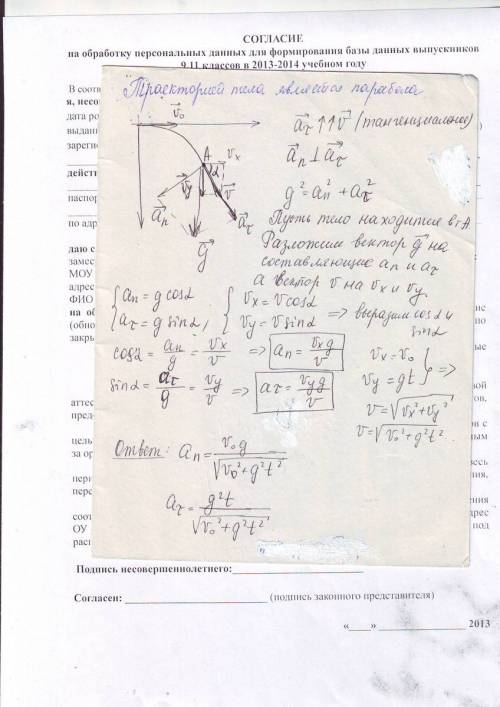 СОГЛАСИЕ
на обработку персональных данных для формирования базы данных выпускников
9,11 классов в 2013-2014 учебном году
В соотв
я, несо
дата ро
выдан
зареги
действ
паспор
по адр
даю с
замес
МОУ
адрес
ФИО
на об
(обно
закры
аттес
пред
цель
за ор
пери
перс
соот
ОУ
расп
Траекторией тела является парабола
v₀
A
vₓ
α
v_y
v
a_n
a_τ
g
a_τ ↑↑ v (тангенциальное)
a_n ⊥ a_τ
g² = a_n² + a_τ²
Пусть тело находится в т А.
Разложим вектор g на
составляющие a_n и a_τ
а вектор v на vₓ и v_y.
{ a_n = g cosα
a_τ = g sinα,
{ vₓ = v cosα
v_y = v sinα
=> выразим cosα и sinα
cosα = a_n/g = vₓ/v => a_n = vₓg/v
sinα = a_τ/g = v_y/v => a_τ = v_yg/v
vₓ = v₀
v_y = gt } =>
v = √(vₓ² + v_y²)
v = √(v₀² + g²t²)
Ответ: a_n = v₀g/√(v₀² + g²t²)
a_τ = g²t/√(v₀² + g²t²)
ие
ные
вой
ов,
с
ым
есь
ния,
ения
дрес
под
Подпись несовершеннолетнего:
Согласен: (подпись законного представителя)
«___» 2013